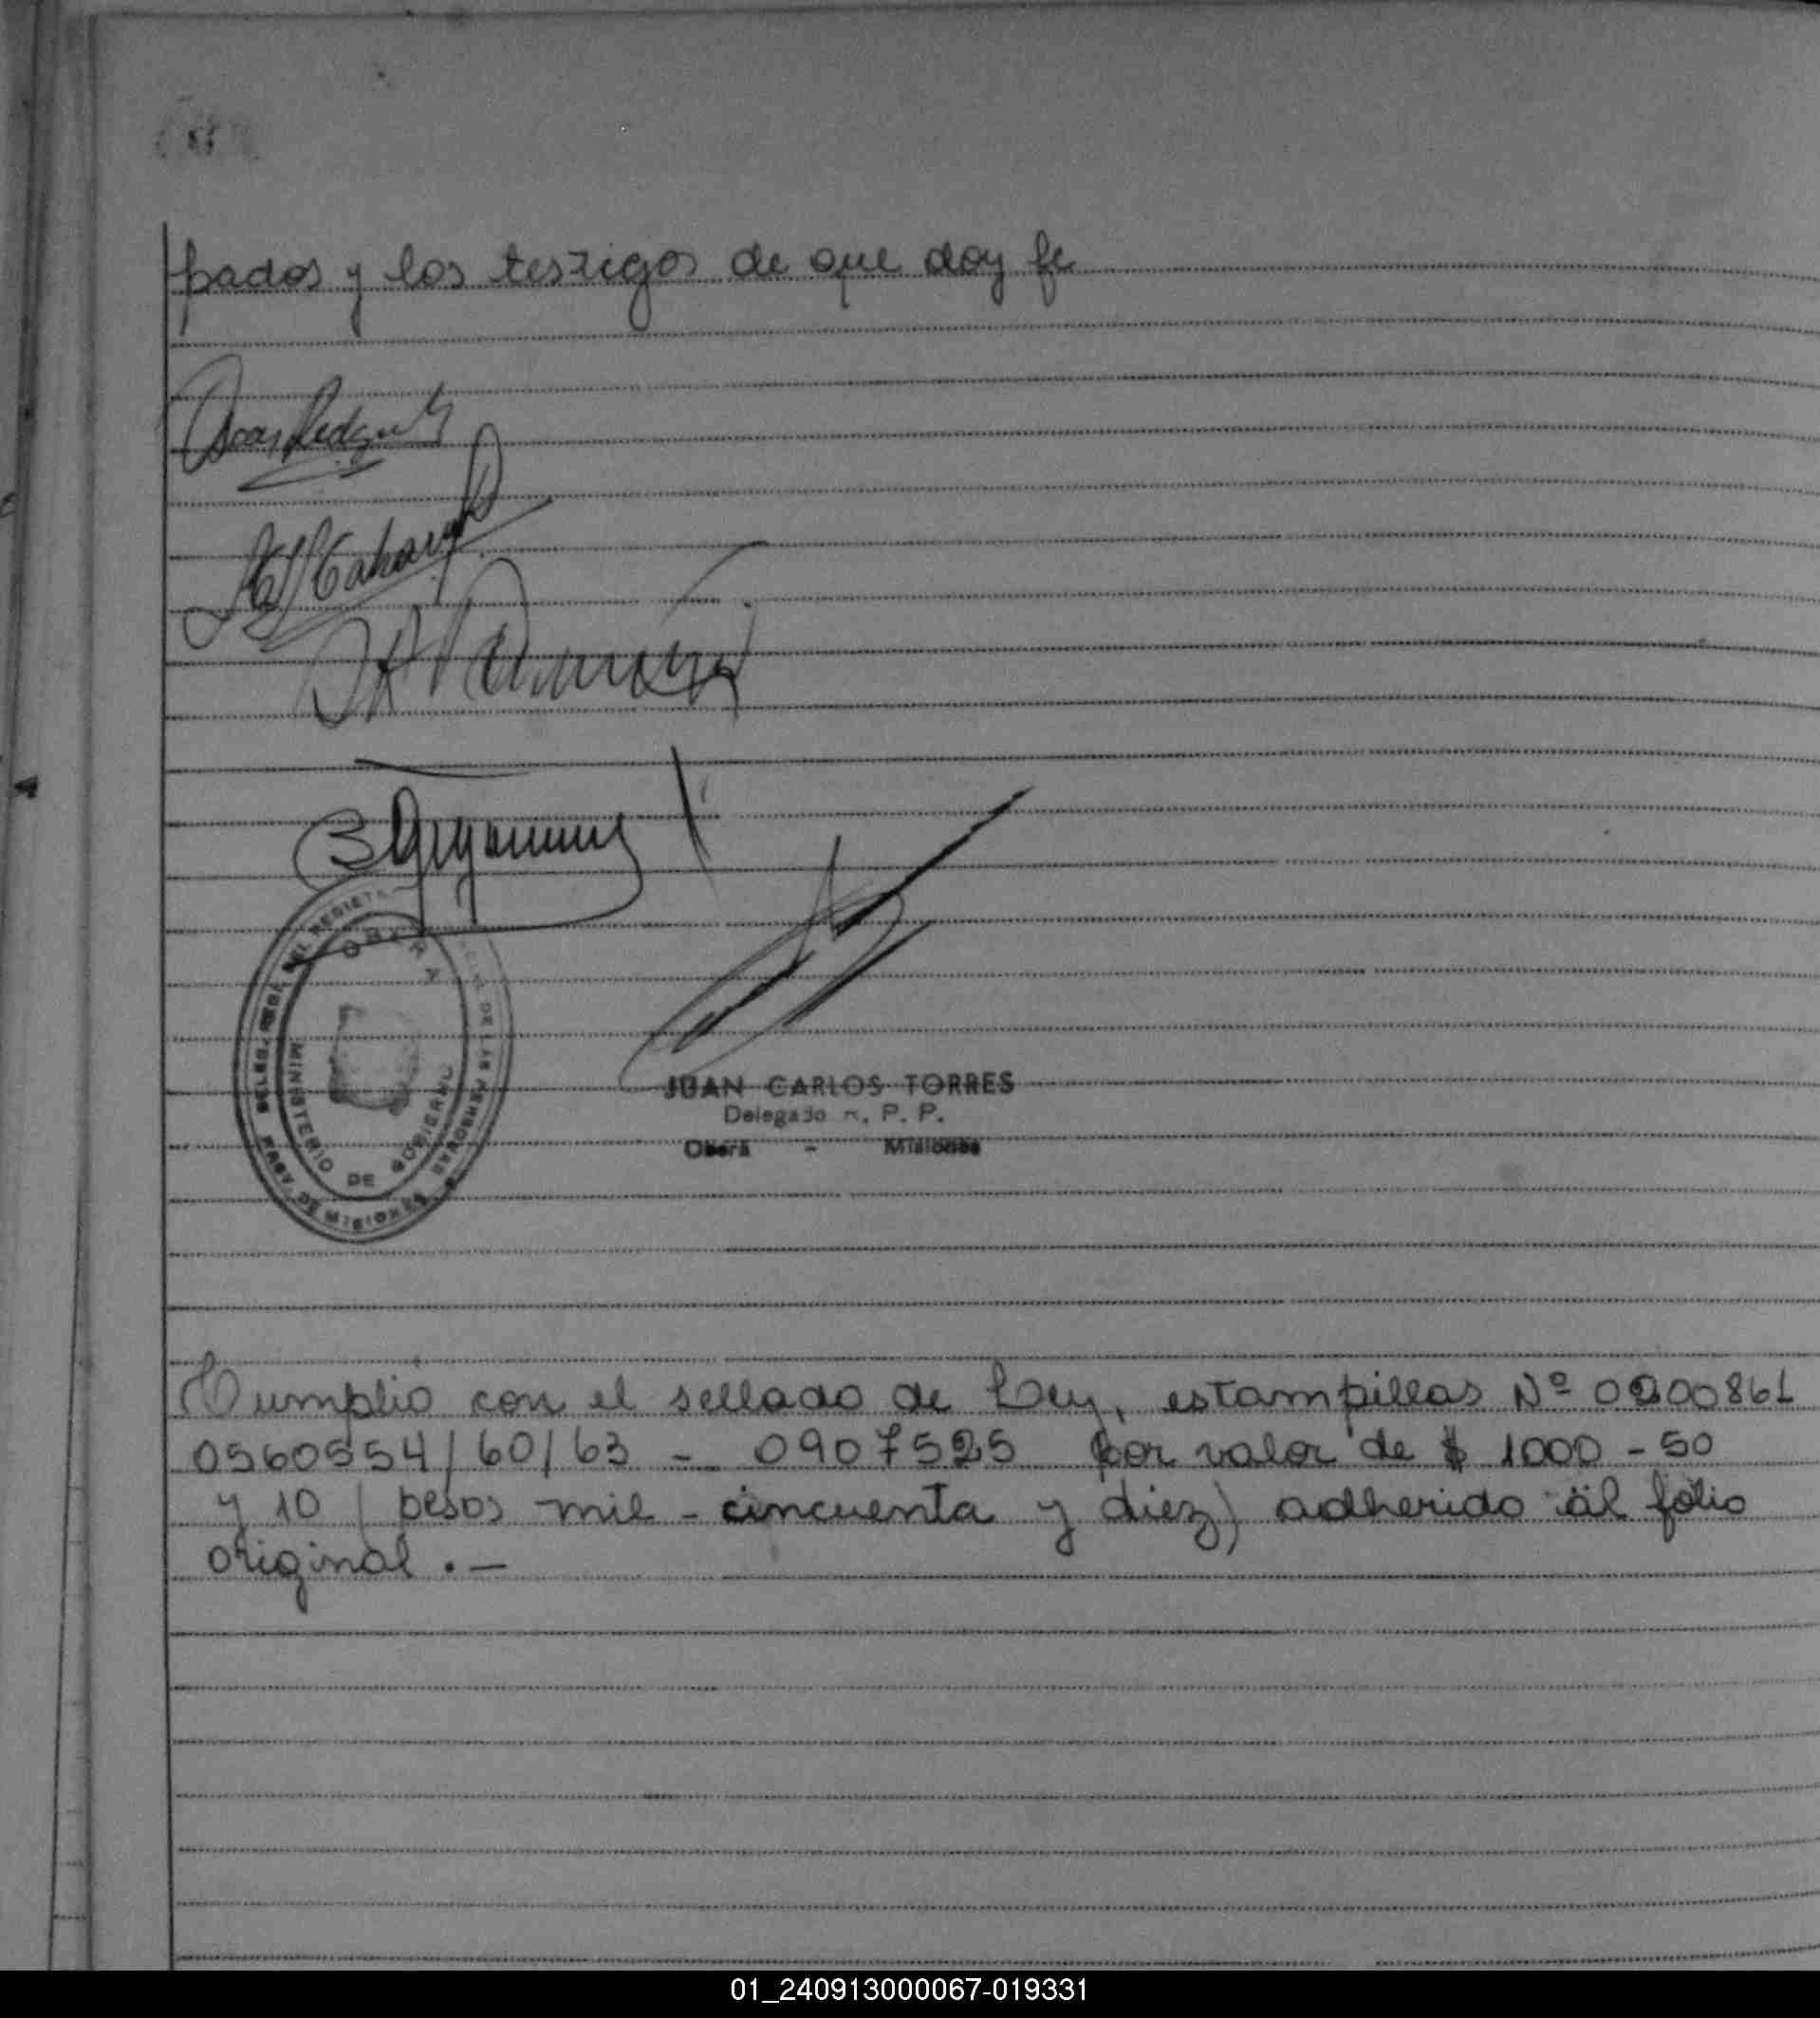 pados y los testigos de que doy fe
OBERA
MINISTERIO DE GOBIERNO
PROV. DE MISIONES
JUAN CARLOS TORRES
Delegado R. P. P.
Oberá - Misiones
Cumplio con el sellado de Ley, estampillas Nº 0200861
0560554/60/63 - 0907525 por valor de $ 1000 - 50
y 10 (pesos mil - cincuenta y diez) adherido al folio
original . —
01_240913000067-019331